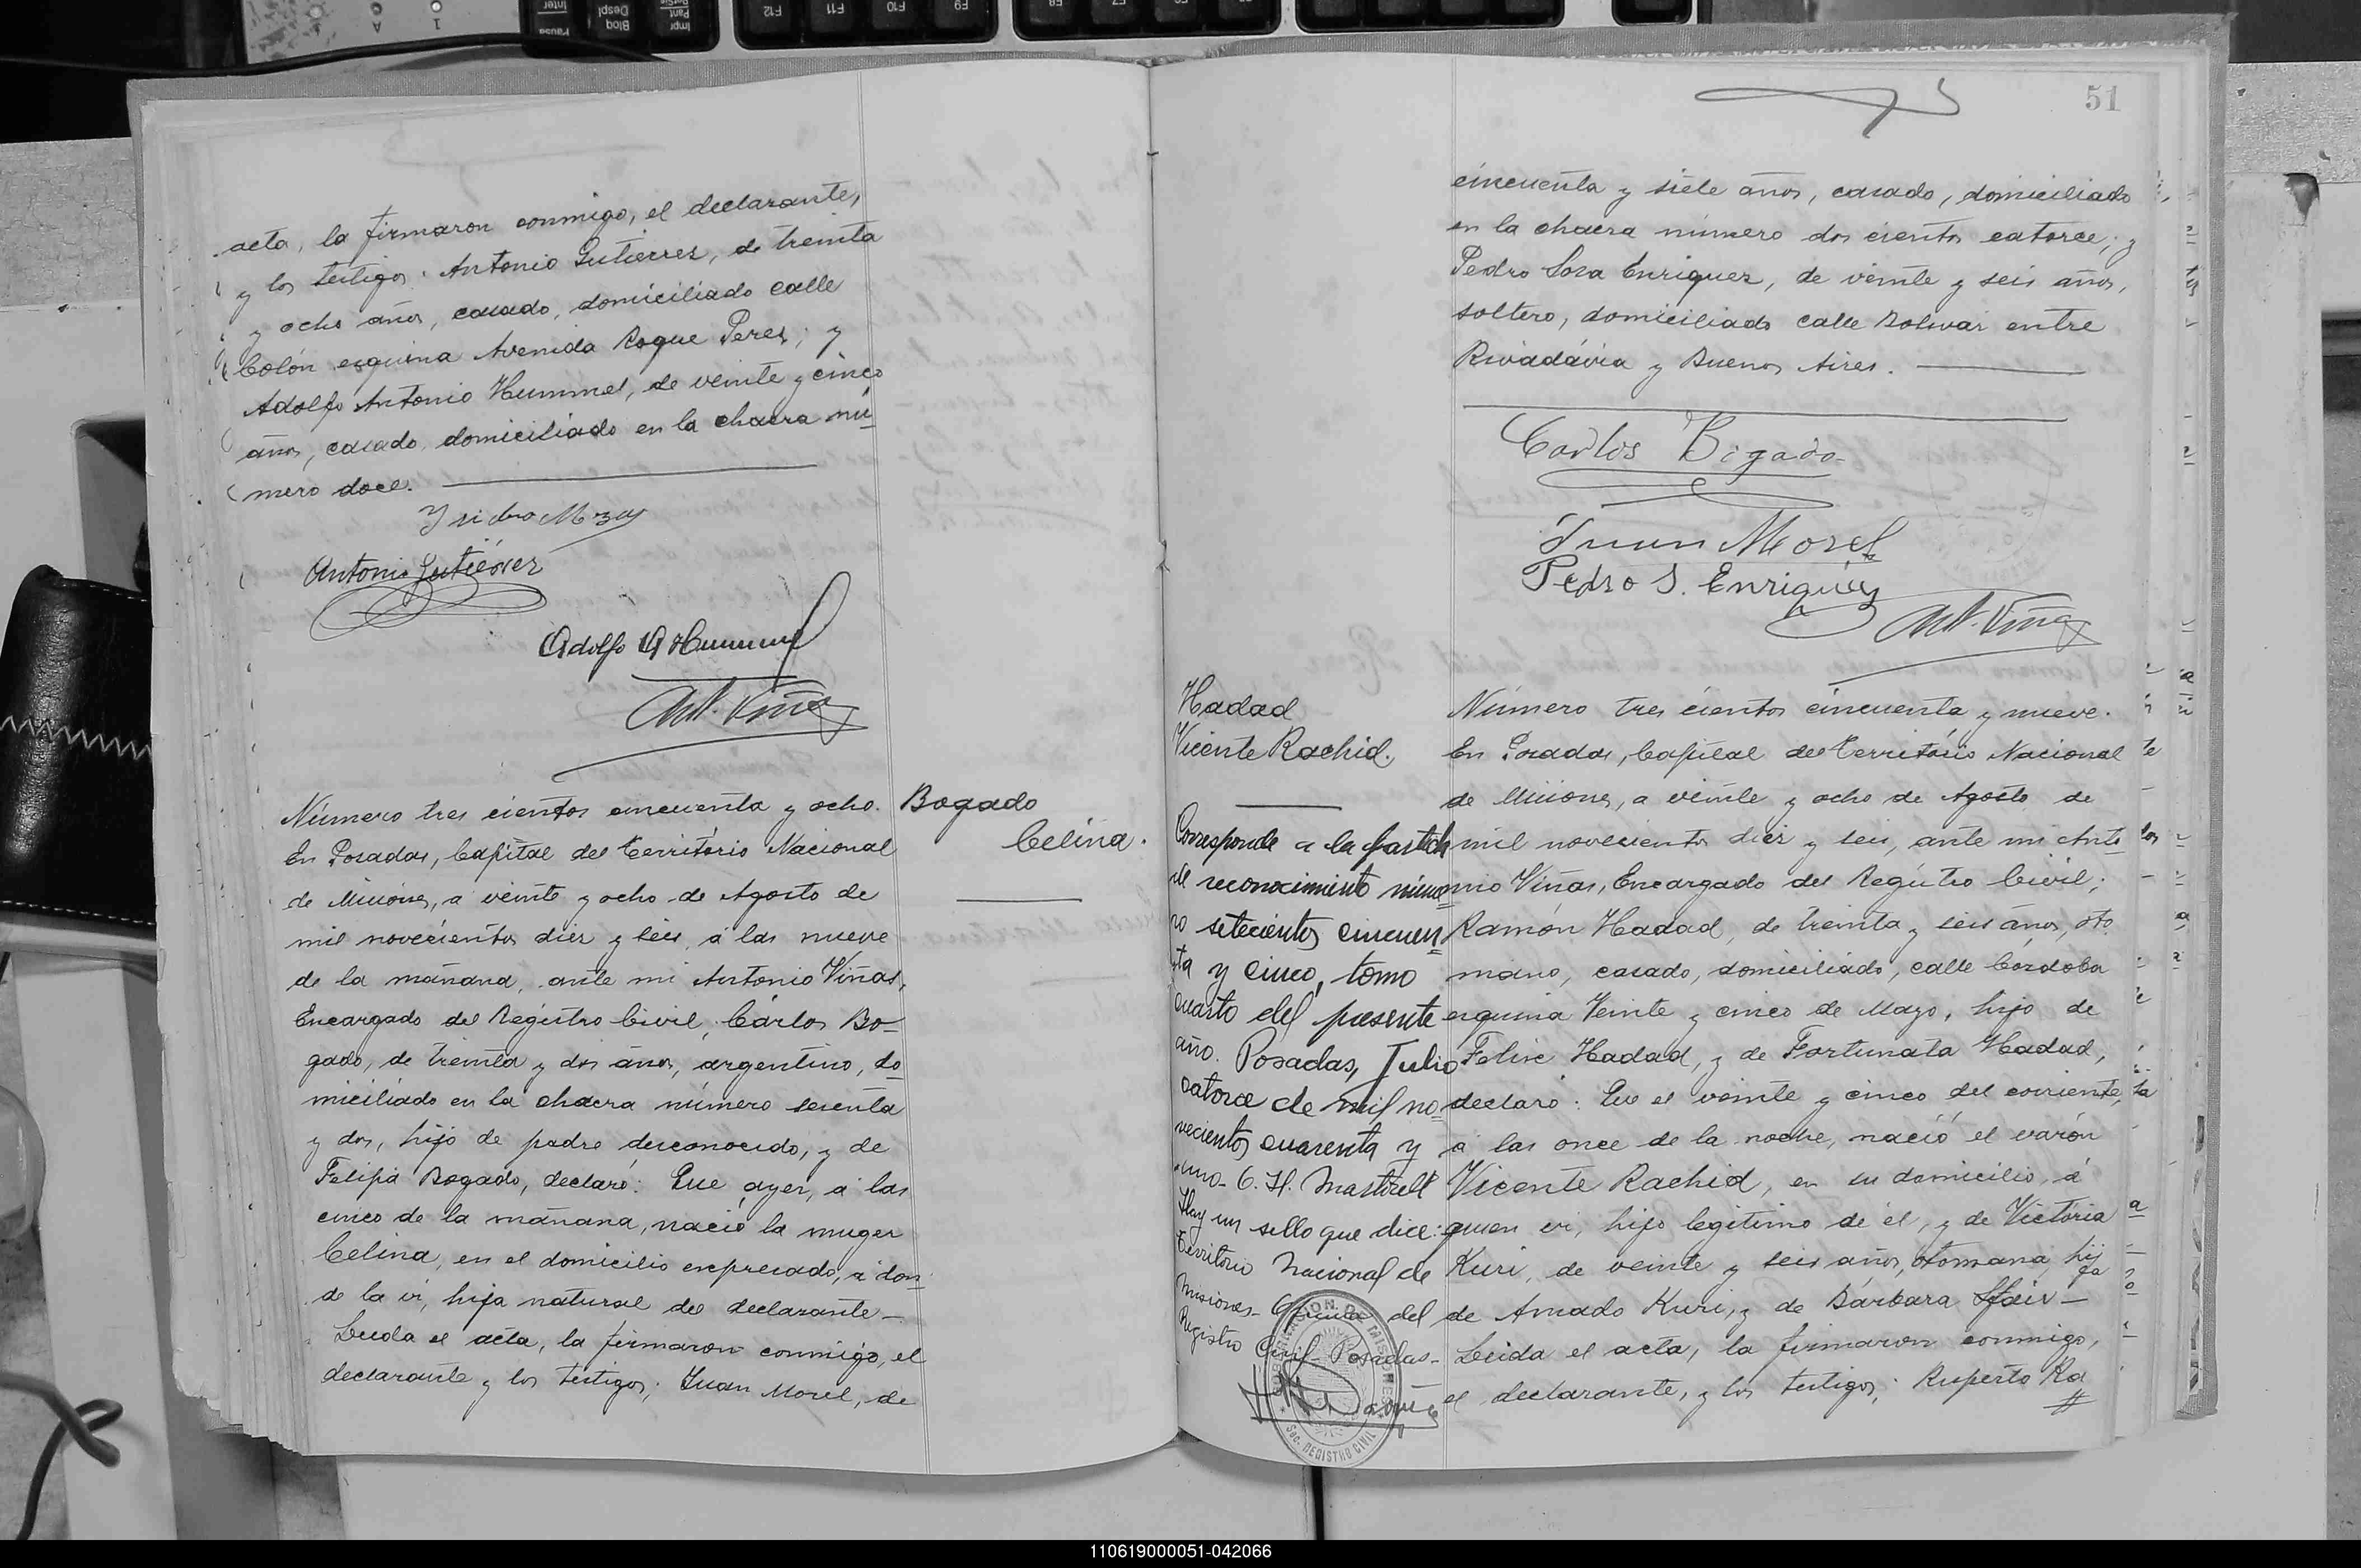 acta, la firmaron conmigo, el declarante,
y los testigos: Antonio Gutierrez, de treinta
y ocho años, casado, domiciliado calle
Colón esquina Avenida Roque Perez; y
Adolfo Antonio Hummel, de veinte y cinco
años, casado, domiciliado en la chacra nú=
mero doce.
Antonio Gutiérrez
Adolfo A Hummel
Ant. Viñas
Número tres cientos cincuenta y ocho.
Bogado
Celina.
En Posadas, Capital del Território Nacional
de Misiones, a veinte y ocho de Agosto de
mil novecientos diez y seis, á las nueve
de la mañana, ante mi Antonio Viñas,
Encargado del Registro Civil, Cárlos Bo-
gado, de treinta y dos años, argentino, do=
miciliado en la chacra número sesenta
y dos, hijo de padre desconocido, y de
Felipa Bogado, declaró: Que ayer, a las
cinco de la mañana, nació la muger
Celina, en el domicilio expresado, a don-
de la vi, hija natural del declarante—
Leida el acta, la firmaron conmigo, el
declarante y los testigos; Juan Morel, de
51
cincuenta y siete años, casado, domiciliado
en la chacra número dos cientos catorce; y
Pedro Sosa Enriquez, de veinte y seis años,
soltero, domiciliado calle Bolivar entre
Rivadávia y Buenos Aires.
Carlos Bogado
Juan Morel
Pedro S. Enriquez
Ant. Viñas
Hadad
Vicente Rachid.
Corresponde a la partida
de reconocimiento núme=
ro setecientos cincuen=
ta y cinco, tomo
cuarto del presente
año. Posadas, Julio
catorce de mil no=
vecientos cuarenta y
uno- C. H. Martorell
Hay un sello que dice:
Territorio Nacional de
Misiones- Oficina del
Registro Civil- Posadas-
Número tres cientos cincuenta y nueve.
En Posadas, Capital del Território Nacional
de Misiones, a veinte y ocho de Agosto de
mil novecientos diez y seis, ante mi Anto=
nio Viñas, Encargado del Registro Civil;
Ramón Hadad, de treinta y seis años, oto
mano, casado, domiciliado, calle Córdoba
esquina Veinte y cinco de Mayo, hijo de
Felix Hadad, y de Fortunata Hadad,
declaró: Que el veinte y cinco del corriente,
á las once de la noche, nació el varón
Vicente Rachid, en su domicilio, á
quien vi, hijo legitimo de él, y de Victória
Kuri, de veinte y seis años, otomana, hija
de Amado Kuri, y de Bárbara
Leida el acta, la firmaron conmigo,
el declarante, y los testigos; Ruperto Ra
REGISTRO CIVIL
110619000051-042066